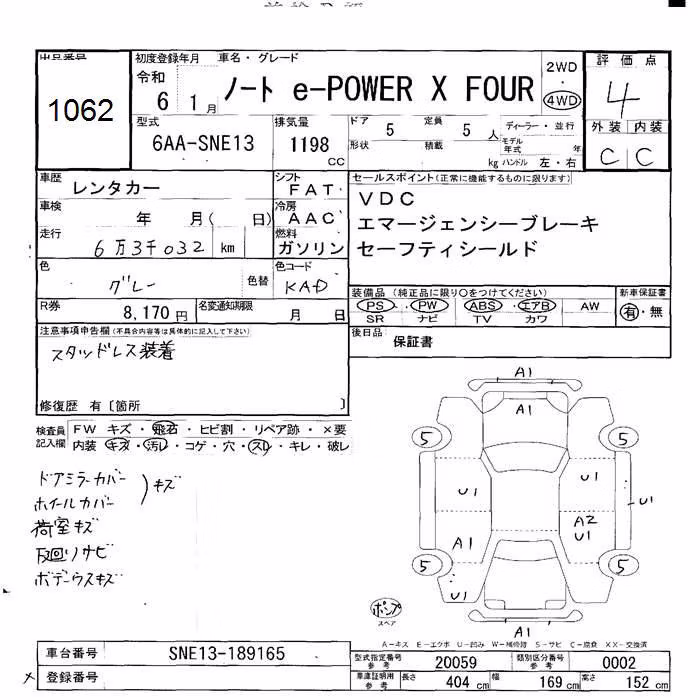 出品番号
1062
初度登録年月
令和
6 1月
車名・グレード
ノート e-POWER X FOUR
2WD
4WD
評価点
4
外装 内装
C C
型式
6AA-SNE13
排気量
1198
CC
ドア 5 定員 5 人
形状 積載 kg
ディーラー・並行
モデル年式 年
ハンドル 左・右
車歴
レンタカー
シフト
FAT
車検 年 月( 日)
冷房
AAC
走行
6万3千032 km
燃料
ガソリン
セールスポイント(正常に機能するものに限ります)
VDC
エマージェンシーブレーキ
セーフティシールド
色
グレー
色替
色コード
KAD
装備品(純正品に限り○をつけてください)
PS・PW・ABS・エアB・AW
SR ナビ TV カワ
新車保証書
有・無
R券
8,170円
名変通知期限
月 日
後日品
保証書
注意事項申告欄(不具合内容等は具体的に記入して下さい)
スタッドレス装着
修復歴 有〔箇所 〕
検査員記入欄
FW キズ・飛石・ヒビ割・リペア跡・×要
内装 キズ・汚レ・コゲ・穴・スレ・キレ・破レ
ドアミラーカバー
ホイールカバー
)キズ
荷室キズ
下回りサビ
ボデーウスキズ
A1
A1
5 5
U1 U1 U1
A2
A1 U1
5 5
U1
ポンプ
スペア
A1
A-キズ E-エクボ U-凹み W-補修跡 S-サビ C-腐食 XX-交換済
車台番号
SNE13-189165
登録番号
型式指定番号
参考
20059
類別区分番号
参考
0002
車庫証明用
参考
長さ 404 cm 幅 169 cm 高さ 152 cm